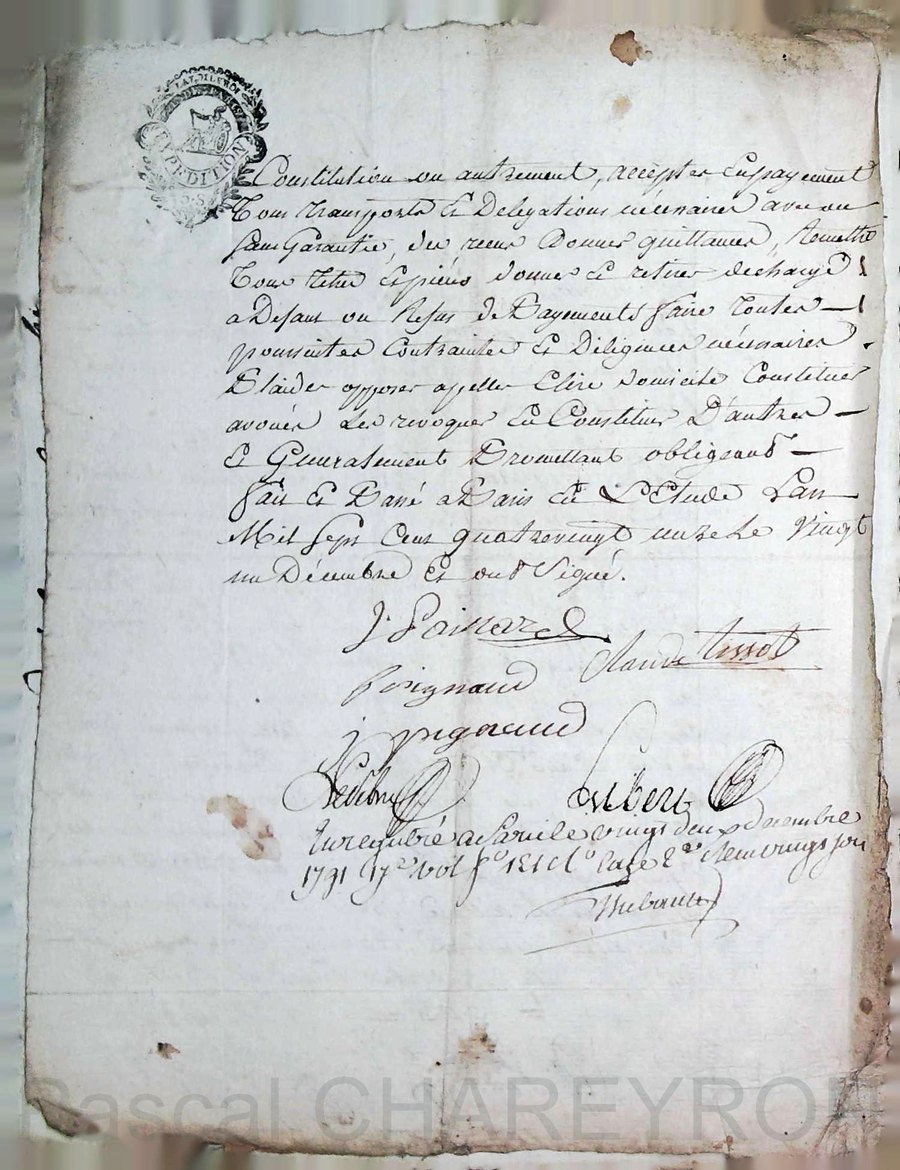 LA LOI LE ROI
EXPEDITION
Constitution ou autrement, accepter En payement
Tous transports Et Delegations nécessaires avec ou
sans Garantie, du recu Donner quittances, Remettre
Tous titres Et pieces donner Et retirer decharge
a Defaut ou Refus de Payements faire toutes —
poursuites Contraintes Et Diligences nécessaires.
Plaider opposer appeller Elire domicile Constituer
avoués Les revoquer En Constituer D'autres —
Et Generalement Promettant obligeant —
fait Et Passé a Paris En L'Etude L'an
Mil Sept Cent quatrevingt onze Le Vingt
un Décembre Et ont Signé.
Claude tissot
Enregistré a Paris le vingt deux decembre
1791 17e. Vol fo 151 Co Case 2e Recu vingt sous
Thibault
Pascal CHAREYRON